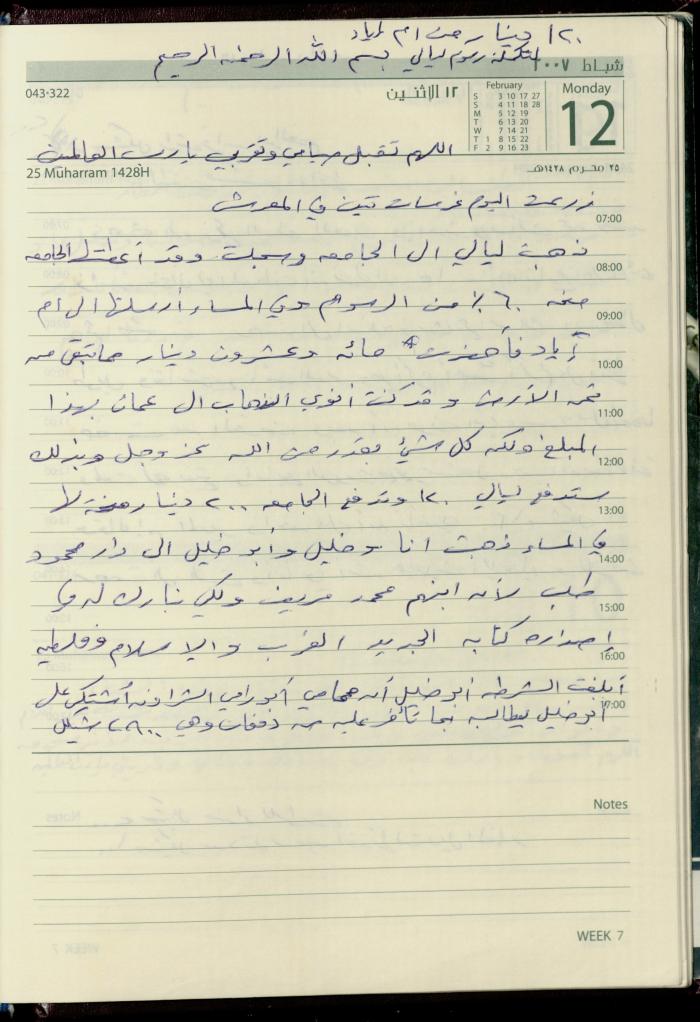 ١٢٠ دينار من ام اياد
لتكملة رسوم ليالي بسم الله الرحمن الرحيم
شباط ٢٠٠٧
043-322
١٢ الاثنين
February
S 3 10 17 27
S 4 11 18 28
M 5 12 19
T 6 13 20
W 7 14 21
T 1 8 15 22
F 2 9 16 23
Monday
12
اللهم تقبل صيامي وتقربي يا رب العالمين
25 Muharram 1428H
٢٥ محرم ١٤٢٨هـ
زرعت اليوم غرسات تين في المعرش
07:00
ذهبت ليالي الى الجامعه وسجلت وقد أعطتها الجامعه
08:00
منحه ٦٠٪ من الرسوم وفي المساء أرسلتها الى ام
09:00
إياد فأحضرت مائه وعشرون دينار مما تبقى من
10:00
ثمن الأرض وقد كنت أنوي الذهاب الى عمان بهذا
11:00
المبلغ ولكن كل شيئ بقدر من الله عز وجل وبذلك
12:00
ستدفع ليالي ١٢٠ وتدفع الجامعه ٢٠٠ دينار منحة لها
13:00
في المساء ذهبت انا وخليل وأبو خليل الى دار محمود
14:00
طلب لأن ابنهم محمد مريض ولكي نبارك له في
15:00
إصداره كتابه الجديد الغرب والاسلام وفلسطين
16:00
أبلغت الشرطه أبو خليل أن محامي أبو رامي الشراونه أشتكى على
17:00
أبو خليل يطالبه بما تأخر عليه من دفعات وهي ٢٨٠٠ شيكل
Notes
WEEK 7